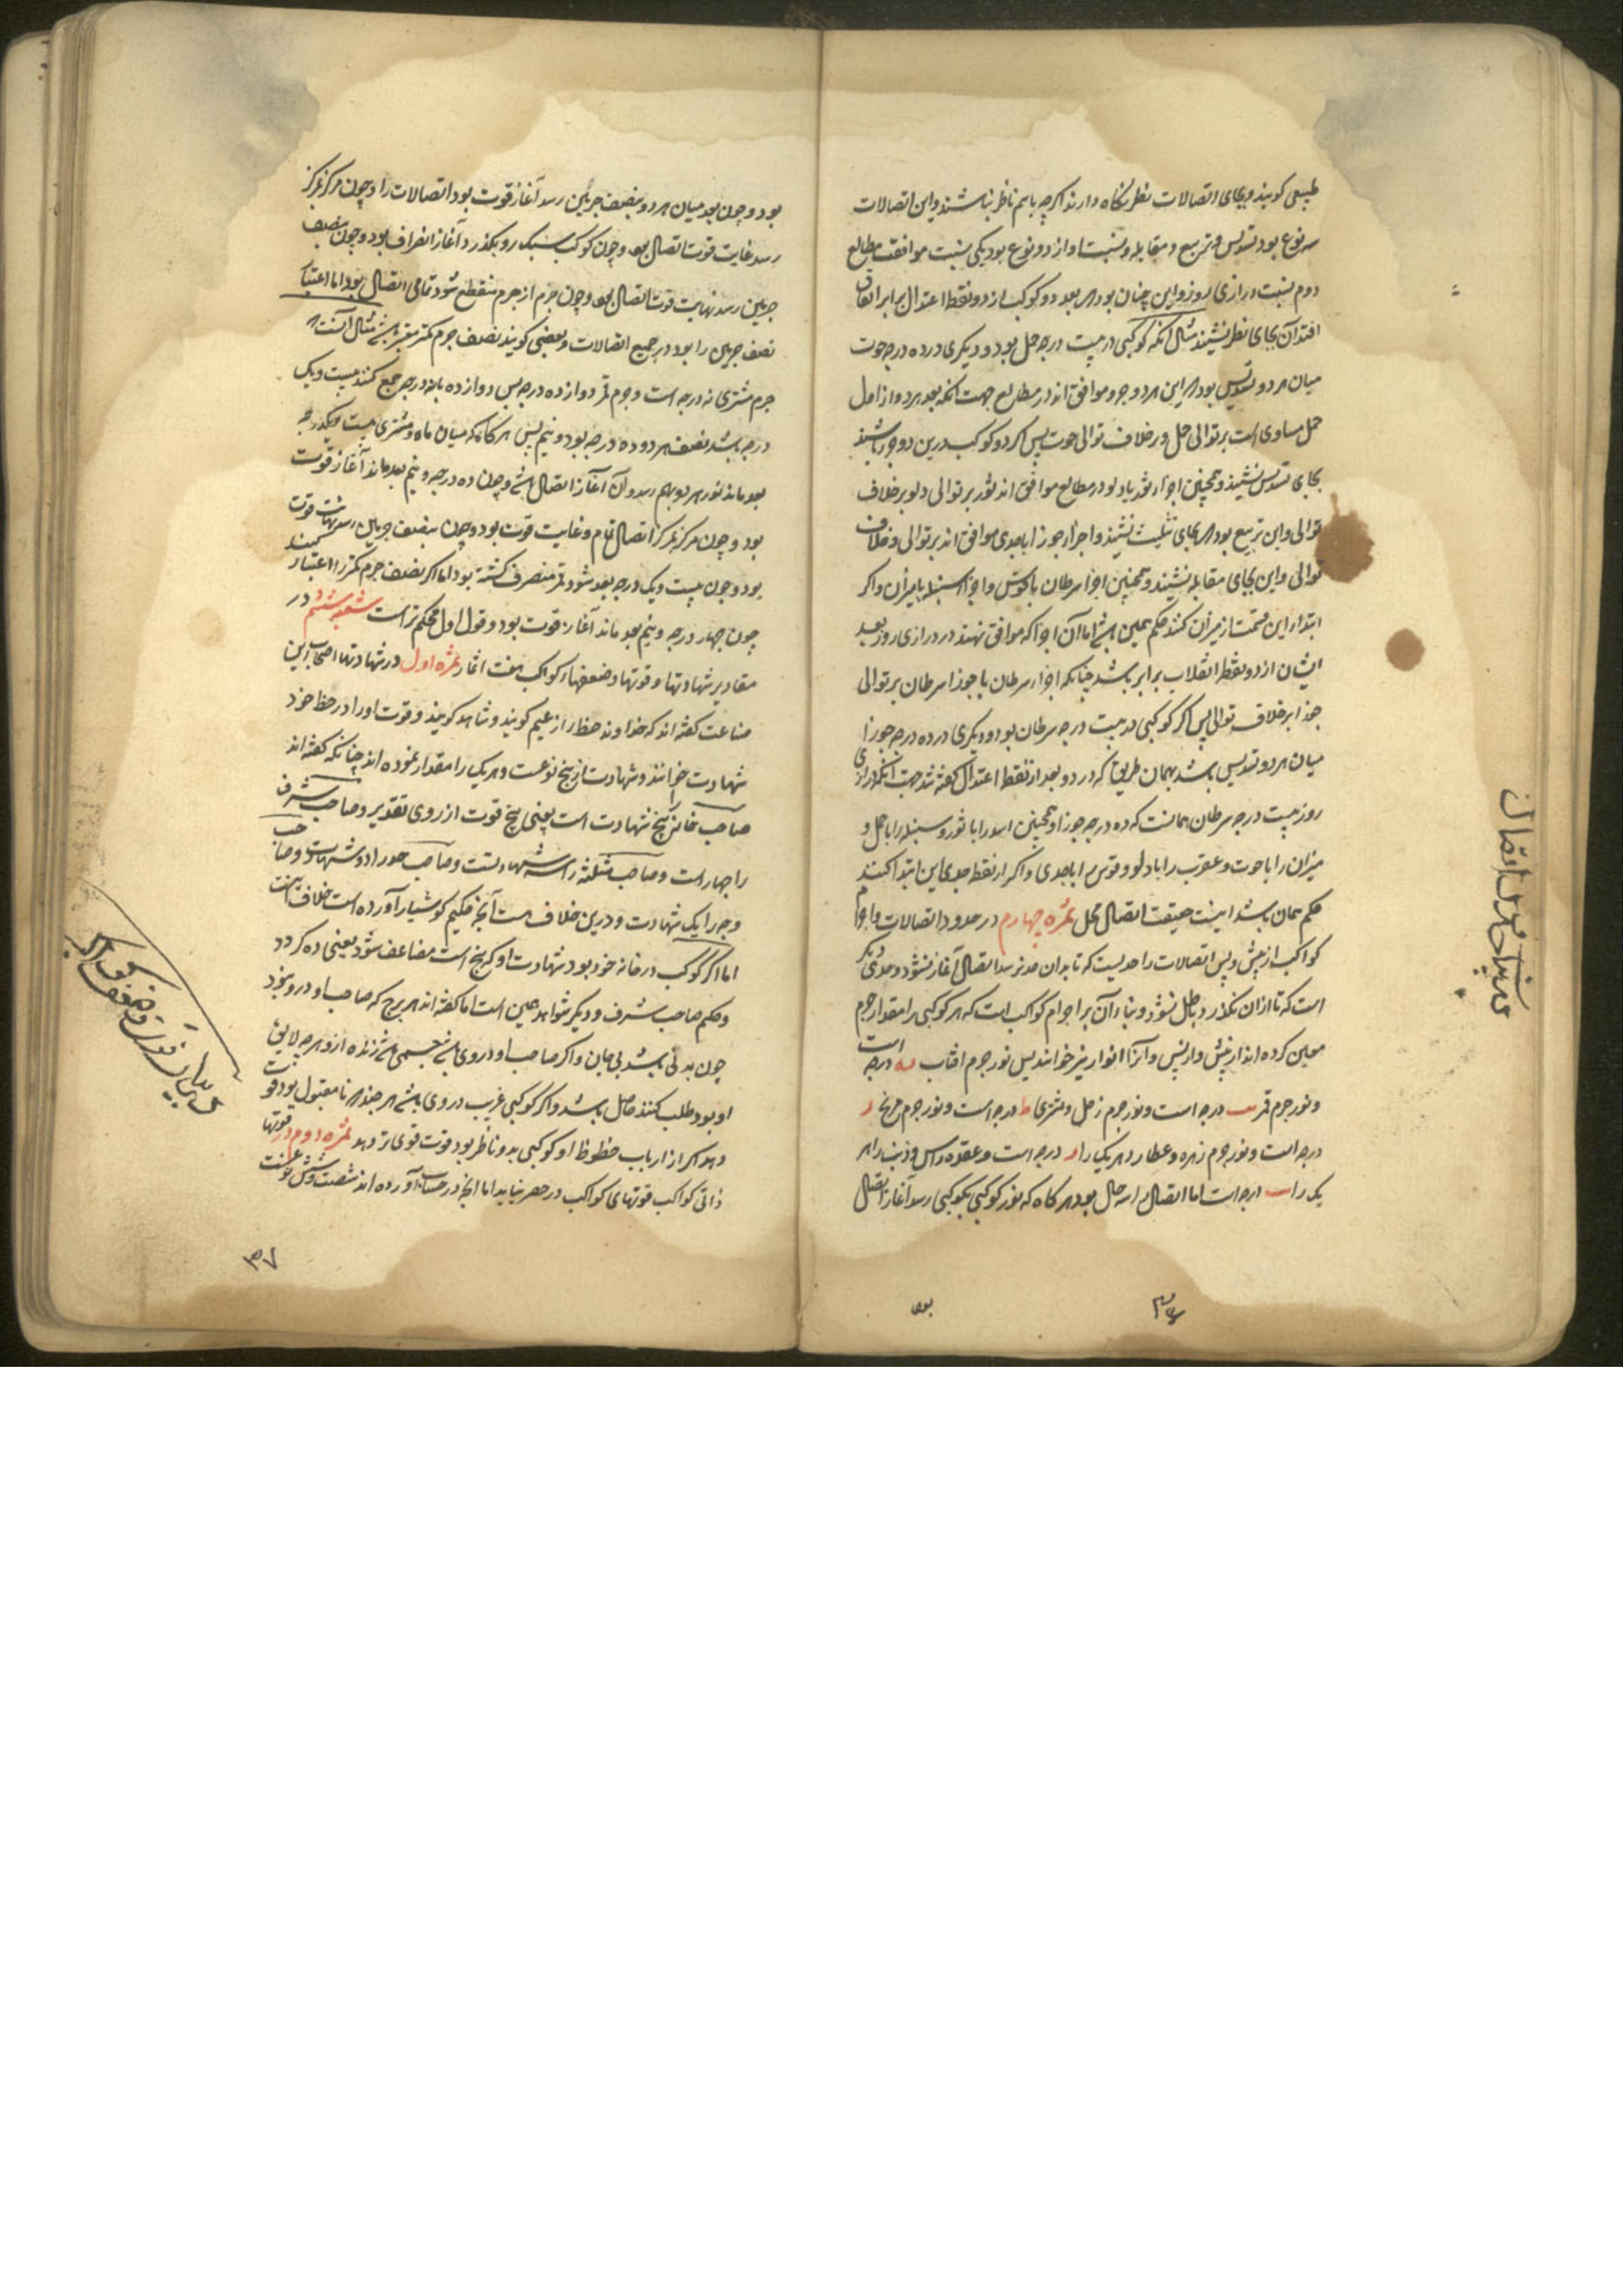 طبیعی کویند وبجای اتصالات نظر نکاه دارند اکرچه باهم ناظر نباشند واین اتصالات
سه نوع بود تسدیس وتربیع ومقابله ونسبت او از دو نوع بود یکی بنسبت موافقت مطالع
دوم بنسبت درازی روز واین چنان بود که بعد دو کوکب از دو نقطه اعتدال برابر اتفاق
افتد آن بجای نظر نشیند مثال آنکه کوکبی در بیست درجه حمل بود و دیکری در ده درجه حوت
میان هر دو تسدیس بود که این هر دو جزو موافق اند در مطالع جهت آنکه بعد هر دو از اول
حمل مساوی است بر توالی حمل وبر خلاف توالی حوت پس اکر دو کوکب درین دو جزو باشند
بجای تسدیس نشیند وهمچنین اجزاء ثور با دلو در مطالع موافق اند ثور بر توالی دلو بر خلاف
توالی واین تربیع بود که بجای تثلیث نشیند واجزاء جوزا با جدی موافق اند بر توالی وخلاف
توالی واین بجای مقابله نشیند وهمچنین اجزا سرطان با قوس واجزا سنبله با میزان واکر
ابتداء این قسمت از میزان کنند حکم همین باشد اما آن اجزا که موافق نهند در درازی روز بعد
ایشان از دو نقطه انقلاب برابر باشد چنانکه اجزاء سرطان با جوزا سرطان بر توالی
جوزا بر خلاف توالی پس اکر کوکبی در بیست درجه سرطان بود و دیکری در ده درجه جوزا
میان هر دو تسدیس باشد بهمان طریق که در دو بعد از نقطه اعتدال کفته شد جهت آنکه درازی
روز بیست درجه سرطان همانست که ده درجه جوزا وهمچنین اسد را با ثور وسنبله را با حمل و
میزان را با حوت وعقرب را با دلو وقوس را با جدی واکر از نقطه جدی این ابتدا کنند
حکم همان باشد اینست حقیقت اتصال محل ثمره چهارم در حدود اتصالات واجرام
کواکب از پیش وپس اتصالات را حدیست که تا بدان حد نرسد اتصال آغاز نشود وحدی دیکر
است که تا ازان نکذرد باطل نشود وبناء آن بر اجرام کواکب است که هر کوکبی را مقدار جرم
معین کرده اند از پیش واز پس وآنرا انوار نیز خوانند پس نور جرم افتاب یه درجه است
ونور جرم قمر یب درجه است ونور جرم زحل ومشتری ط درجه است ونور جرم مریخ ح
درجه است ونور جرم زهره وعطارد هر یک را ز درجه است وعقده راس وذنب را هر
یک را یب درجه است اما اتصال را سه حال بود هر کاه که نور کوکبی بکوکبی رسد آغاز اتصال
بود
۳۶
بود وچون بعد میان هر دو بنصف جرمین رسد آغاز قوت بود اتصالات را وچون مرکز بمرکز
رسد غایت قوت اتصال بود وچون کوکب سبک رو بکذرد آغاز انصراف بود وچون بنصف
جرمین رسد نهایت قوت اتصال بود وچون جرم از جرم منقطع شود تمامی اتصال بود اما اعتبار
نصف جرمین را بود در جمیع اتصالات وبعضی کویند نصف جرم کمتر معتبر باشد مثال آنست که
جرم مشتری نه درجه است وجرم قمر دوازده درجه پس دوازده با نه درجه جمع کنند بیست ویک
درجه باشد نصف هر دو ده درجه بود ونیم پس هر کاه که میان ماه ومشتری بیست ویکدرجه
بعد ماند نور هر دو بهم رسد وآن آغاز اتصال باشد وچون ده درجه ونیم بعد ماند آغاز قوت
بود وچون مرکز بمرکز اتصال تمام وغایت قوت بود وچون بنصف جرمین رسد نهایت قوت
بود وچون بیست ویک درجه بعد شود قمر منصرف کشته بود اما اکر نصف جرم کمتر را اعتبار کنند
چون چهار درجه ونیم بعد ماند آغاز قوت بود وقول اول محکم تر است شعبه ششم در
مقادیر شهادتها وقوتها وضعفهاء کواکب هفت ثمار ثمره اول در شهادتها اصحاب این
صناعت کفته اند که خداوند حظ را زعیم کویند وشاهد کویند وقوت او را در حظ خود
شهادت خوانند وشهادت از پنج نوعست وهر یک را مقدار نموده اند چنانکه کفته اند
صاحب خانه را پنج شهادت است یعنی پنج قوت از روی تقدیر وصاحب شرف
را چهار است وصاحب مثلثه را سه شهادتست وصاحب حد را دو شهادت وصاحب
وجه را یک شهادت ودرین خلاف هست آنچه حکیم کوشیار آورده است خلاف اینست
اما اکر کوکب در خانه خود بود شهادت او که پنج است مضاعف شود یعنی ده کردد
وحکم صاحب شرف ودیکر شواهد همین است اما کفته اند هر برج که صاحب او درو نبود
چون بدنی باشد بی جان واکر صاحب او در وی باشد جسمی باشد زنده ازو هر چه لایق
او بود طلب کنند حاصل باشد واکر کوکبی غریب در وی باشد هر چند که نامقبول بود قوت
دهد اکر از ارباب حظوظ او کوکبی بدو ناظر بود قوت قوی تر دهد ثمره دوم در قوتها
ذاتی کواکب قوتهای کواکب در حصر نیاید اما آنچه در حساب آورده اند شصت وشش قوتست
۳۷